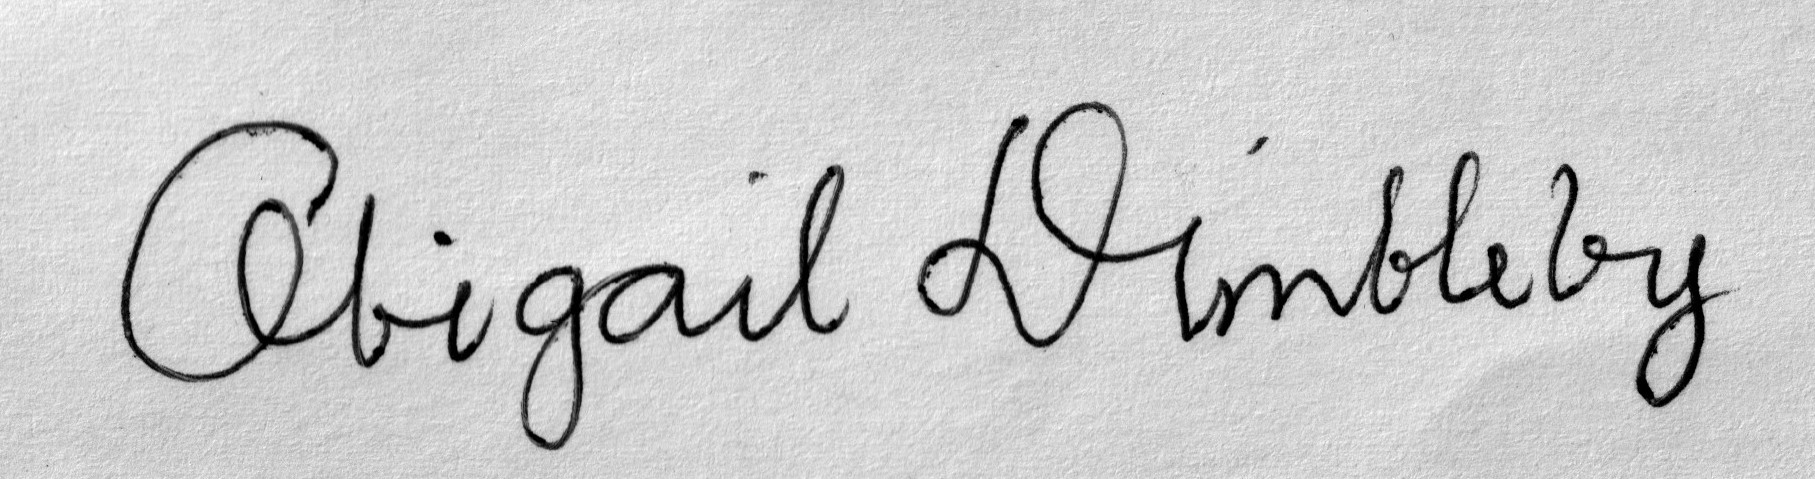 Abigail Dimbleby